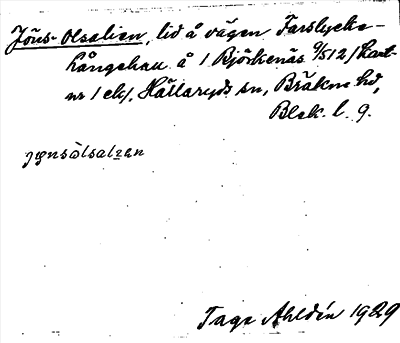 Jöns-Olsalien, lid å vägen Farslycke-
Långehau å 1 Björkenäs 9/512 / kart-
nr 1 ek/, Hällaryds sn, Bräkne hd,
Blek. l. 9.
Tage Ahldén 1929